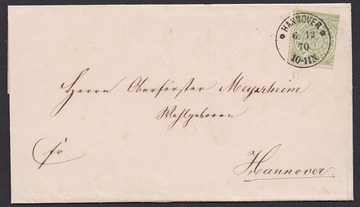 HANNOVER
6 12
70
10-11V.
Herrn Oberförster Meyerheim
Wohlgeboren
fr
Hannover.